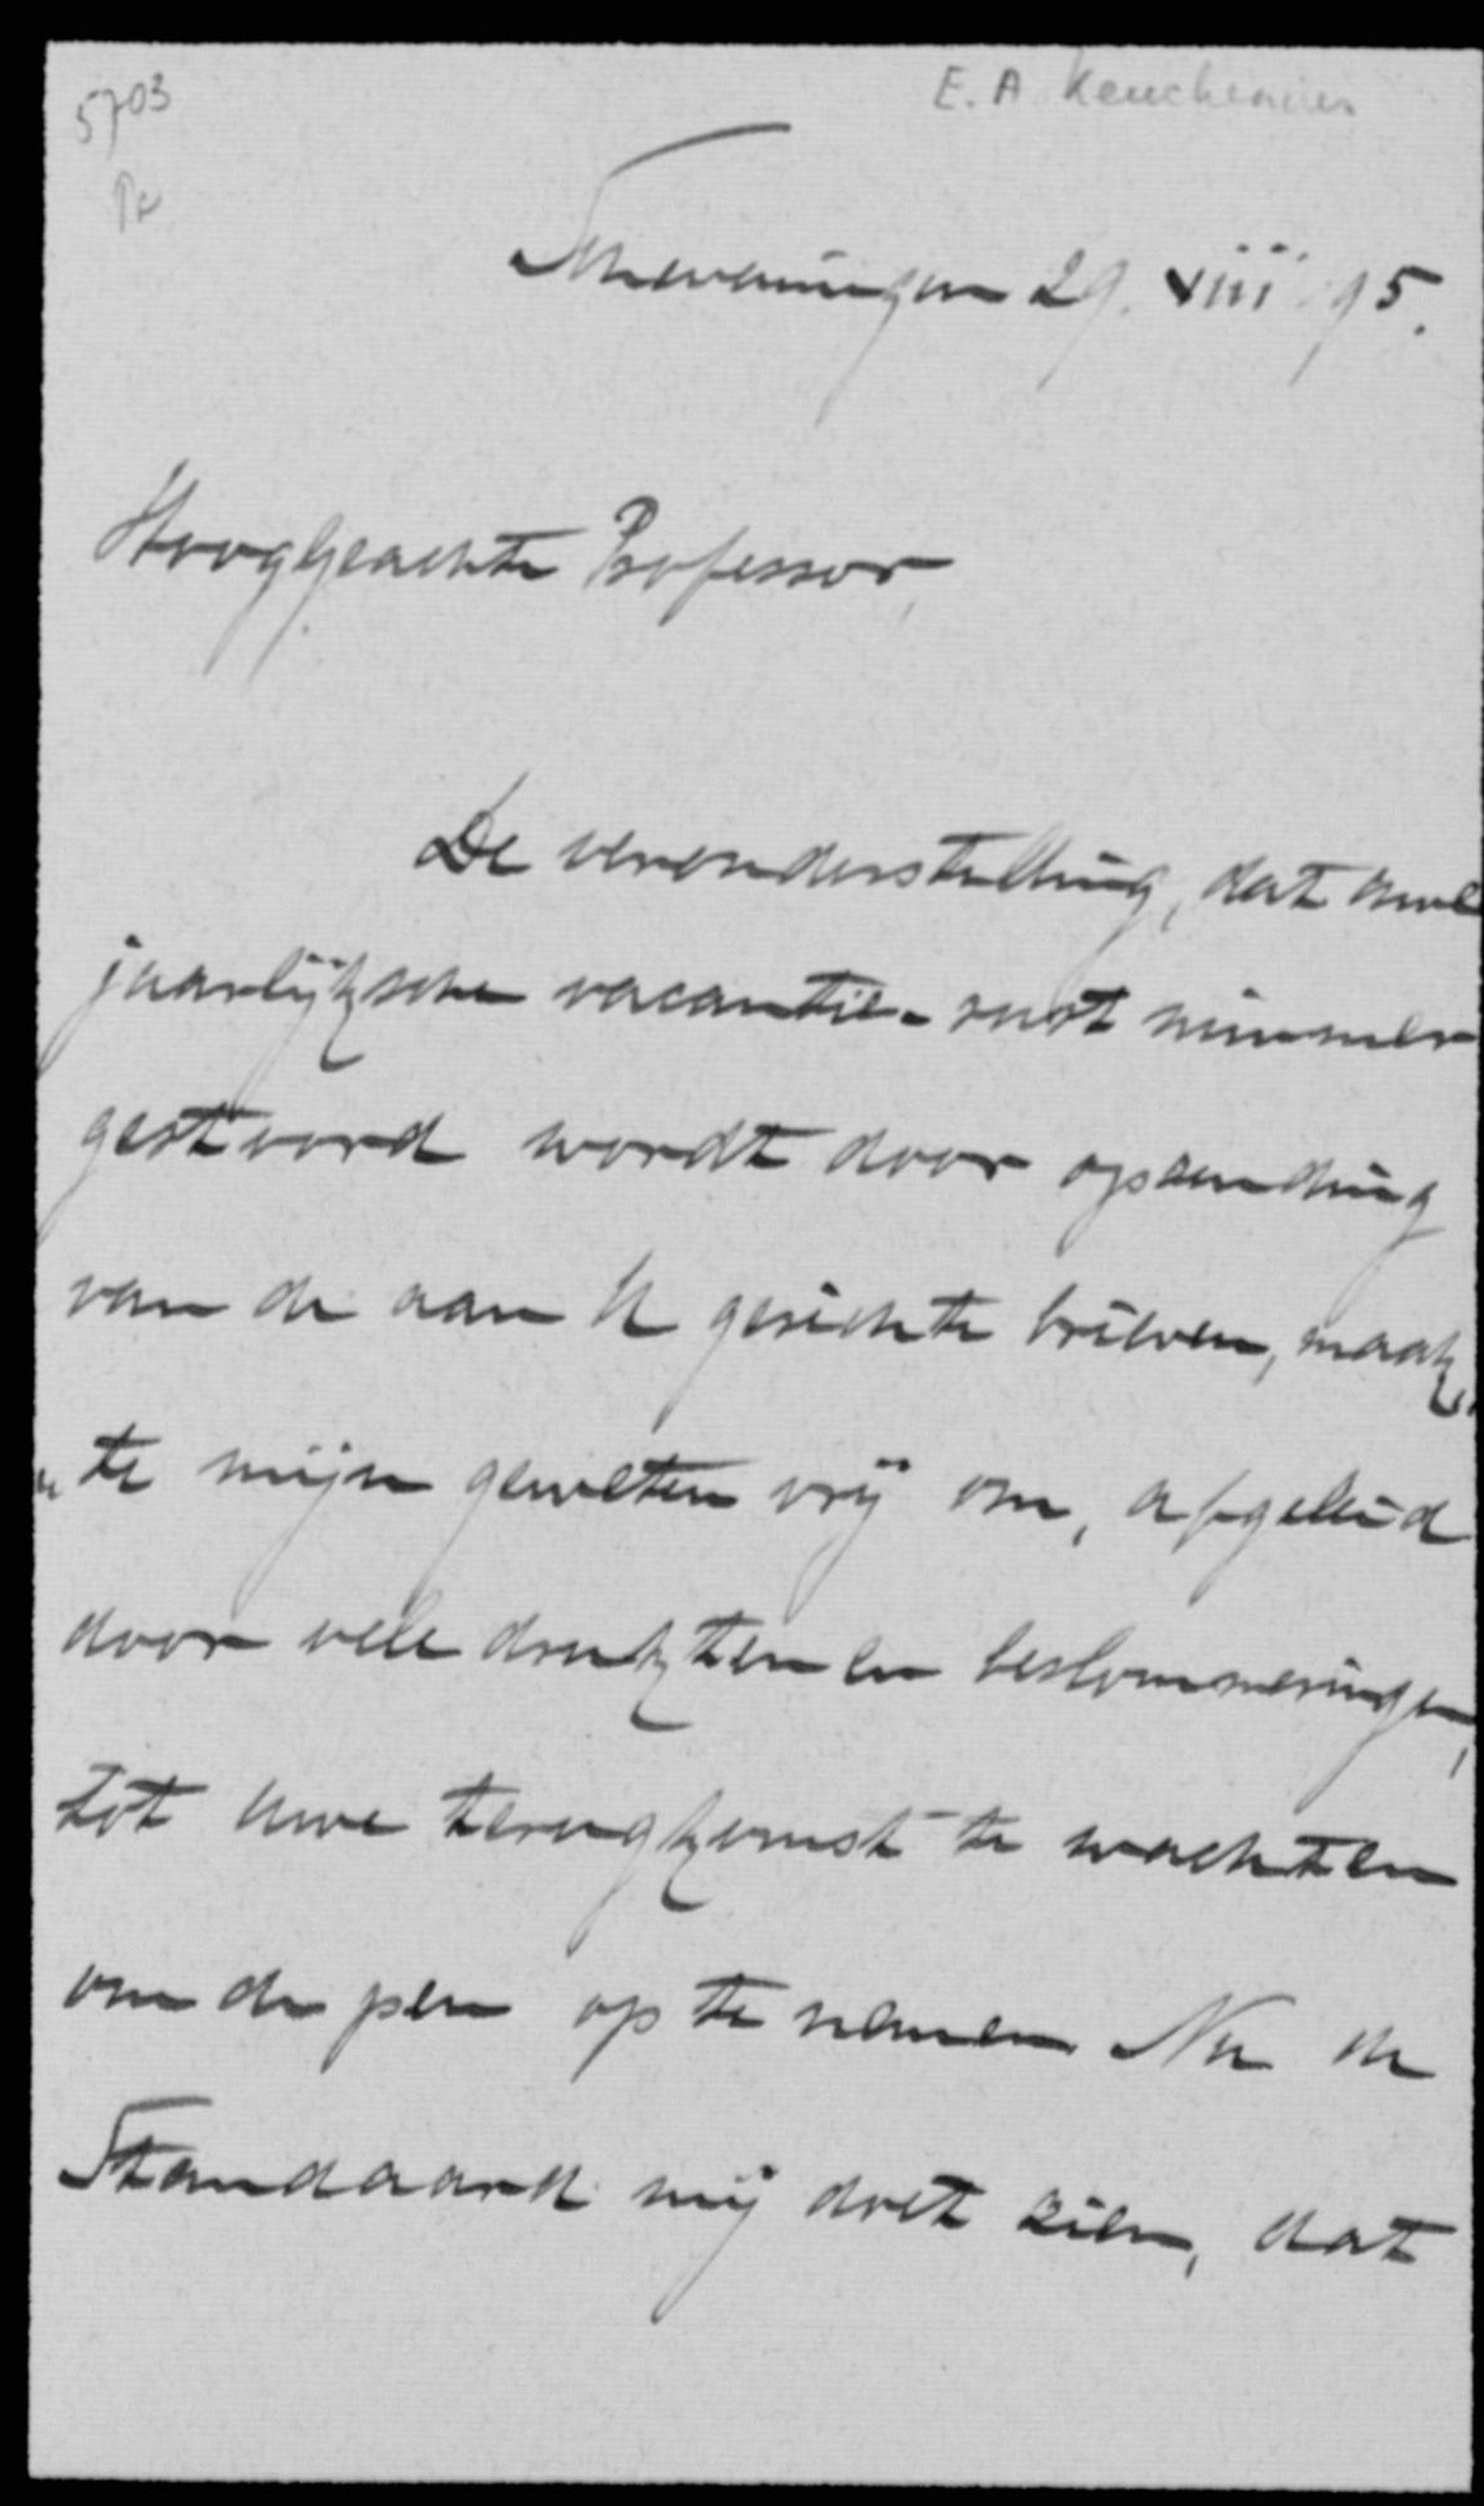 5703
E. A. Keuchenius
Scheveningen 29. viii. 95.
Hooggeachte Professor,
De veronderstelling, dat uwe
jaarlijksche vacantie-rust nimmer
gestoord wordt door opzending
van de aan U gerichte brieven, maak„
„te mijn geweten vrij om, afgeleid
door vele drukten en beslommeringen,
tot uwe terugkomst te wachten
om de pen op te nemen. Nu de
Standaard mij doet zien, dat